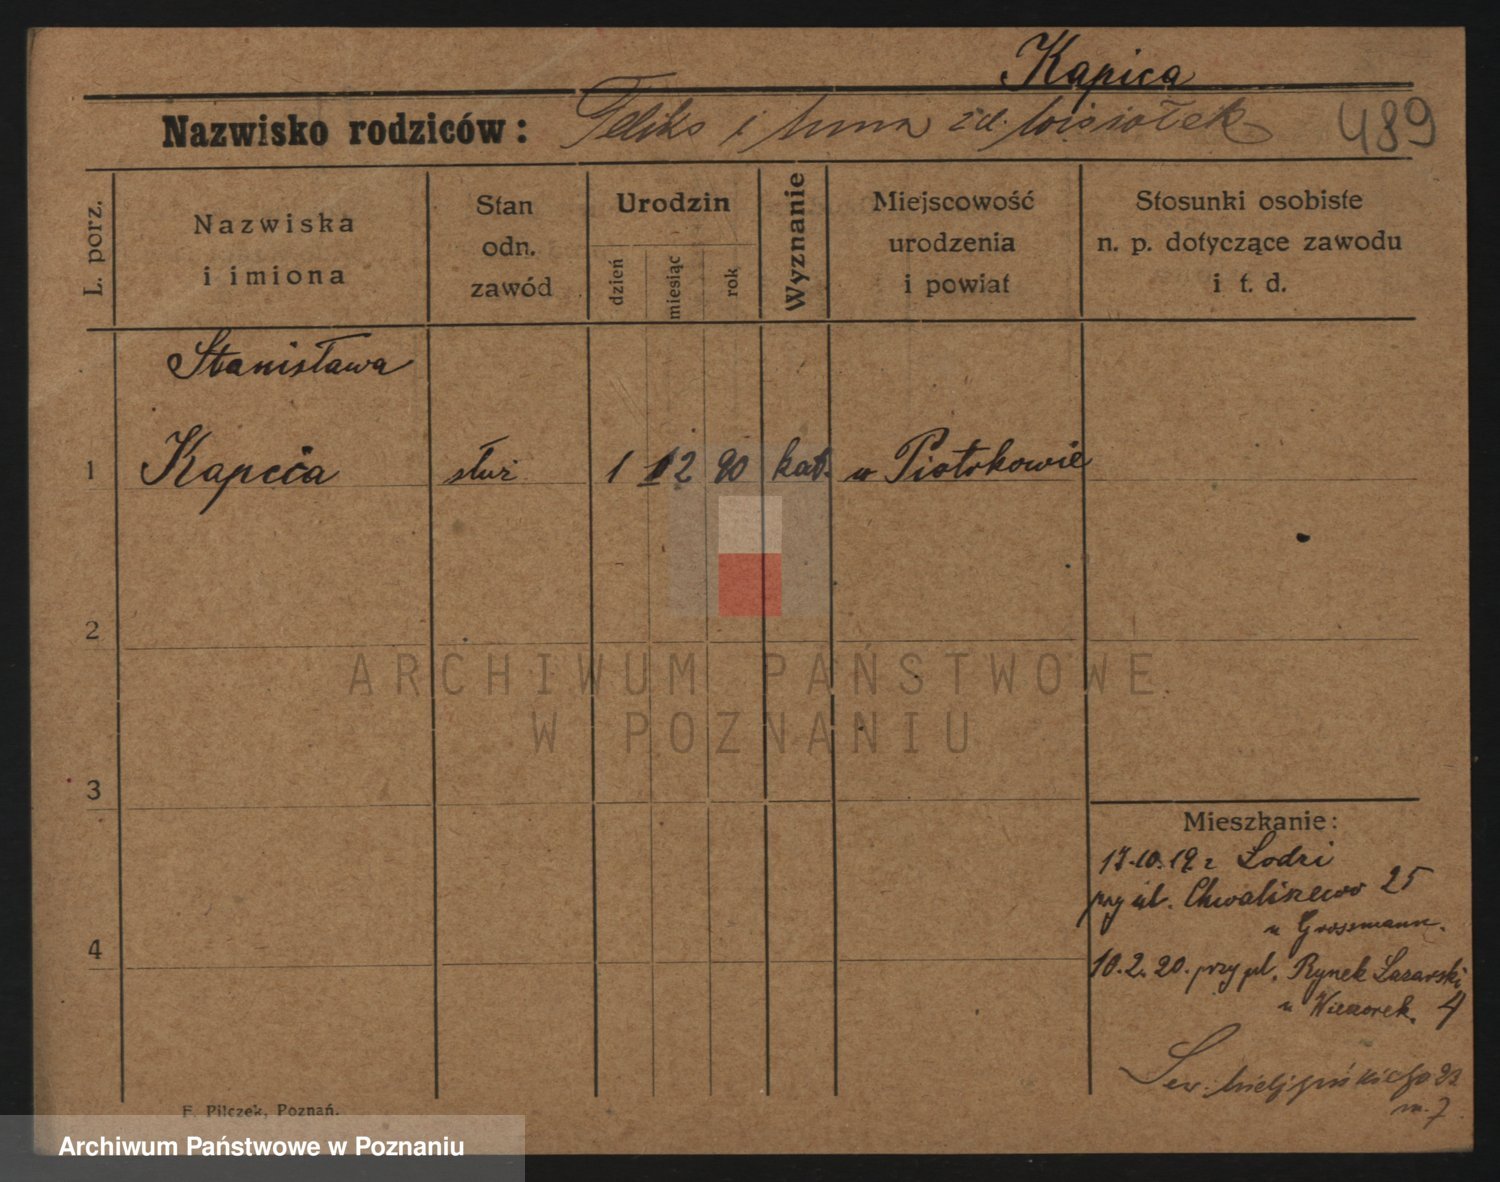 Kapica
Nazwisko rodziców: Feliks i Anna zd. Wisiołek
489
L. porz.
Nazwiska
i imiona
Stan
odn.
zawód
Urodzin
dzień
miesiąc
rok
Wyznanie
Miejscowość
urodzenia
i powiat
Stosunki osobiste
n. p. dotyczące zawodu
i t. d.
Stanisława
1 Kapica służ 1 12 90 kat. w Piotrkowie
2
ARCHIWUM PAŃSTWOWE
W POZNANIU
3
Mieszkanie:
17.10.19 z Łodzi
przy ul. Chwaliszewo 25
u Grossmann.
4
10.2.20. przy pl. Rynek Łazarski
u Wieczorek. 4
Sew. Mielżyńskiego 23
m. 7.
F. Pilczek, Poznań.
Archiwum Państwowe w Poznaniu